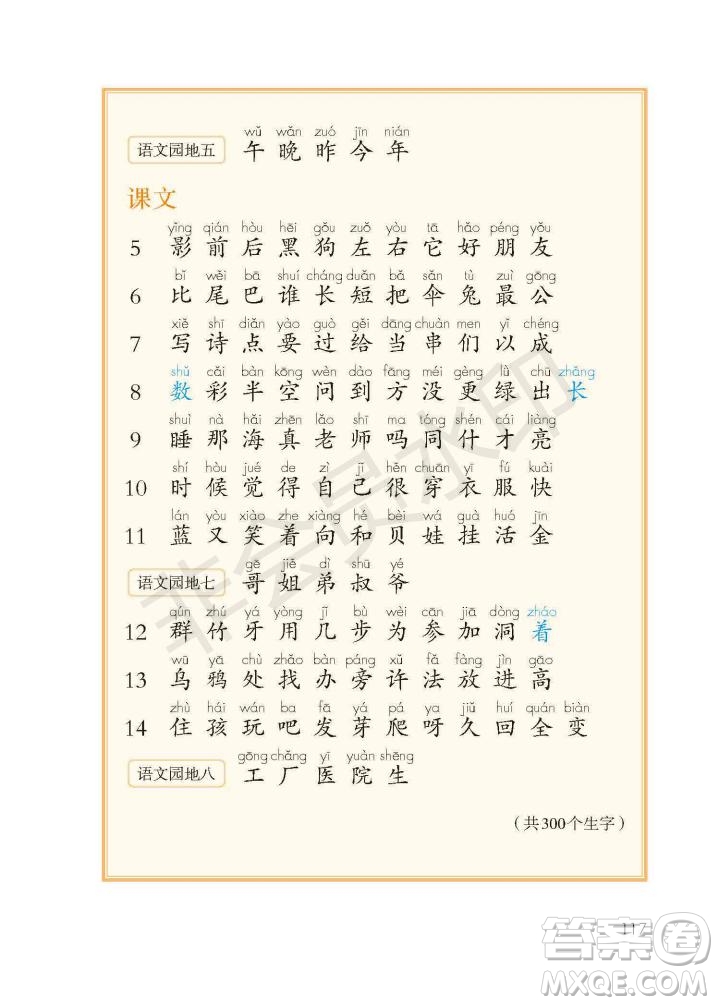 wǔ wǎn zuó jīn nián
语文园地五 午 晚 昨 今 年
课文
yǐng qián hòu hēi gǒu zuǒ yòu tā hǎo péng yǒu
5 影 前 后 黑 狗 左 右 它 好 朋 友
bǐ wěi bā shuí cháng duǎn bǎ sǎn tù zuì gōng
6 比 尾 巴 谁 长 短 把 伞 兔 最 公
xiě shī diǎn yào guò gěi dāng chuàn men yǐ chéng
7 写 诗 点 要 过 给 当 串 们 以 成
shǔ cǎi bàn kōng wèn dào fāng méi gèng lǜ chū zhǎng
8 数 彩 半 空 问 到 方 没 更 绿 出 长
shuì nà hǎi zhēn lǎo shī ma tóng shén cái liàng
9 睡 那 海 真 老 师 吗 同 什 才 亮
shí hòu jué de zì jǐ hěn chuān yī fú kuài
10 时 候 觉 得 自 己 很 穿 衣 服 快
lán yòu xiào zhe xiàng hé bèi wá guà huó jīn
11 蓝 又 笑 着 向 和 贝 娃 挂 活 金
gē jiě dì shū yé
语文园地七 哥 姐 弟 叔 爷
qún zhú yá yòng jǐ bù wèi cān jiā dòng zháo
12 群 竹 牙 用 几 步 为 参 加 洞 着
wū yā chù zhǎo bàn páng xǔ fǎ fàng jìn gāo
13 乌 鸦 处 找 办 旁 许 法 放 进 高
zhù hái wán ba fā yá pá ya jiǔ huí quán biàn
14 住 孩 玩 吧 发 芽 爬 呀 久 回 全 变
gōng chǎng yī yuàn shēng
语文园地八 工 厂 医 院 生
（共300个生字）
117
非会员水印
答案圈
MXQE.COM